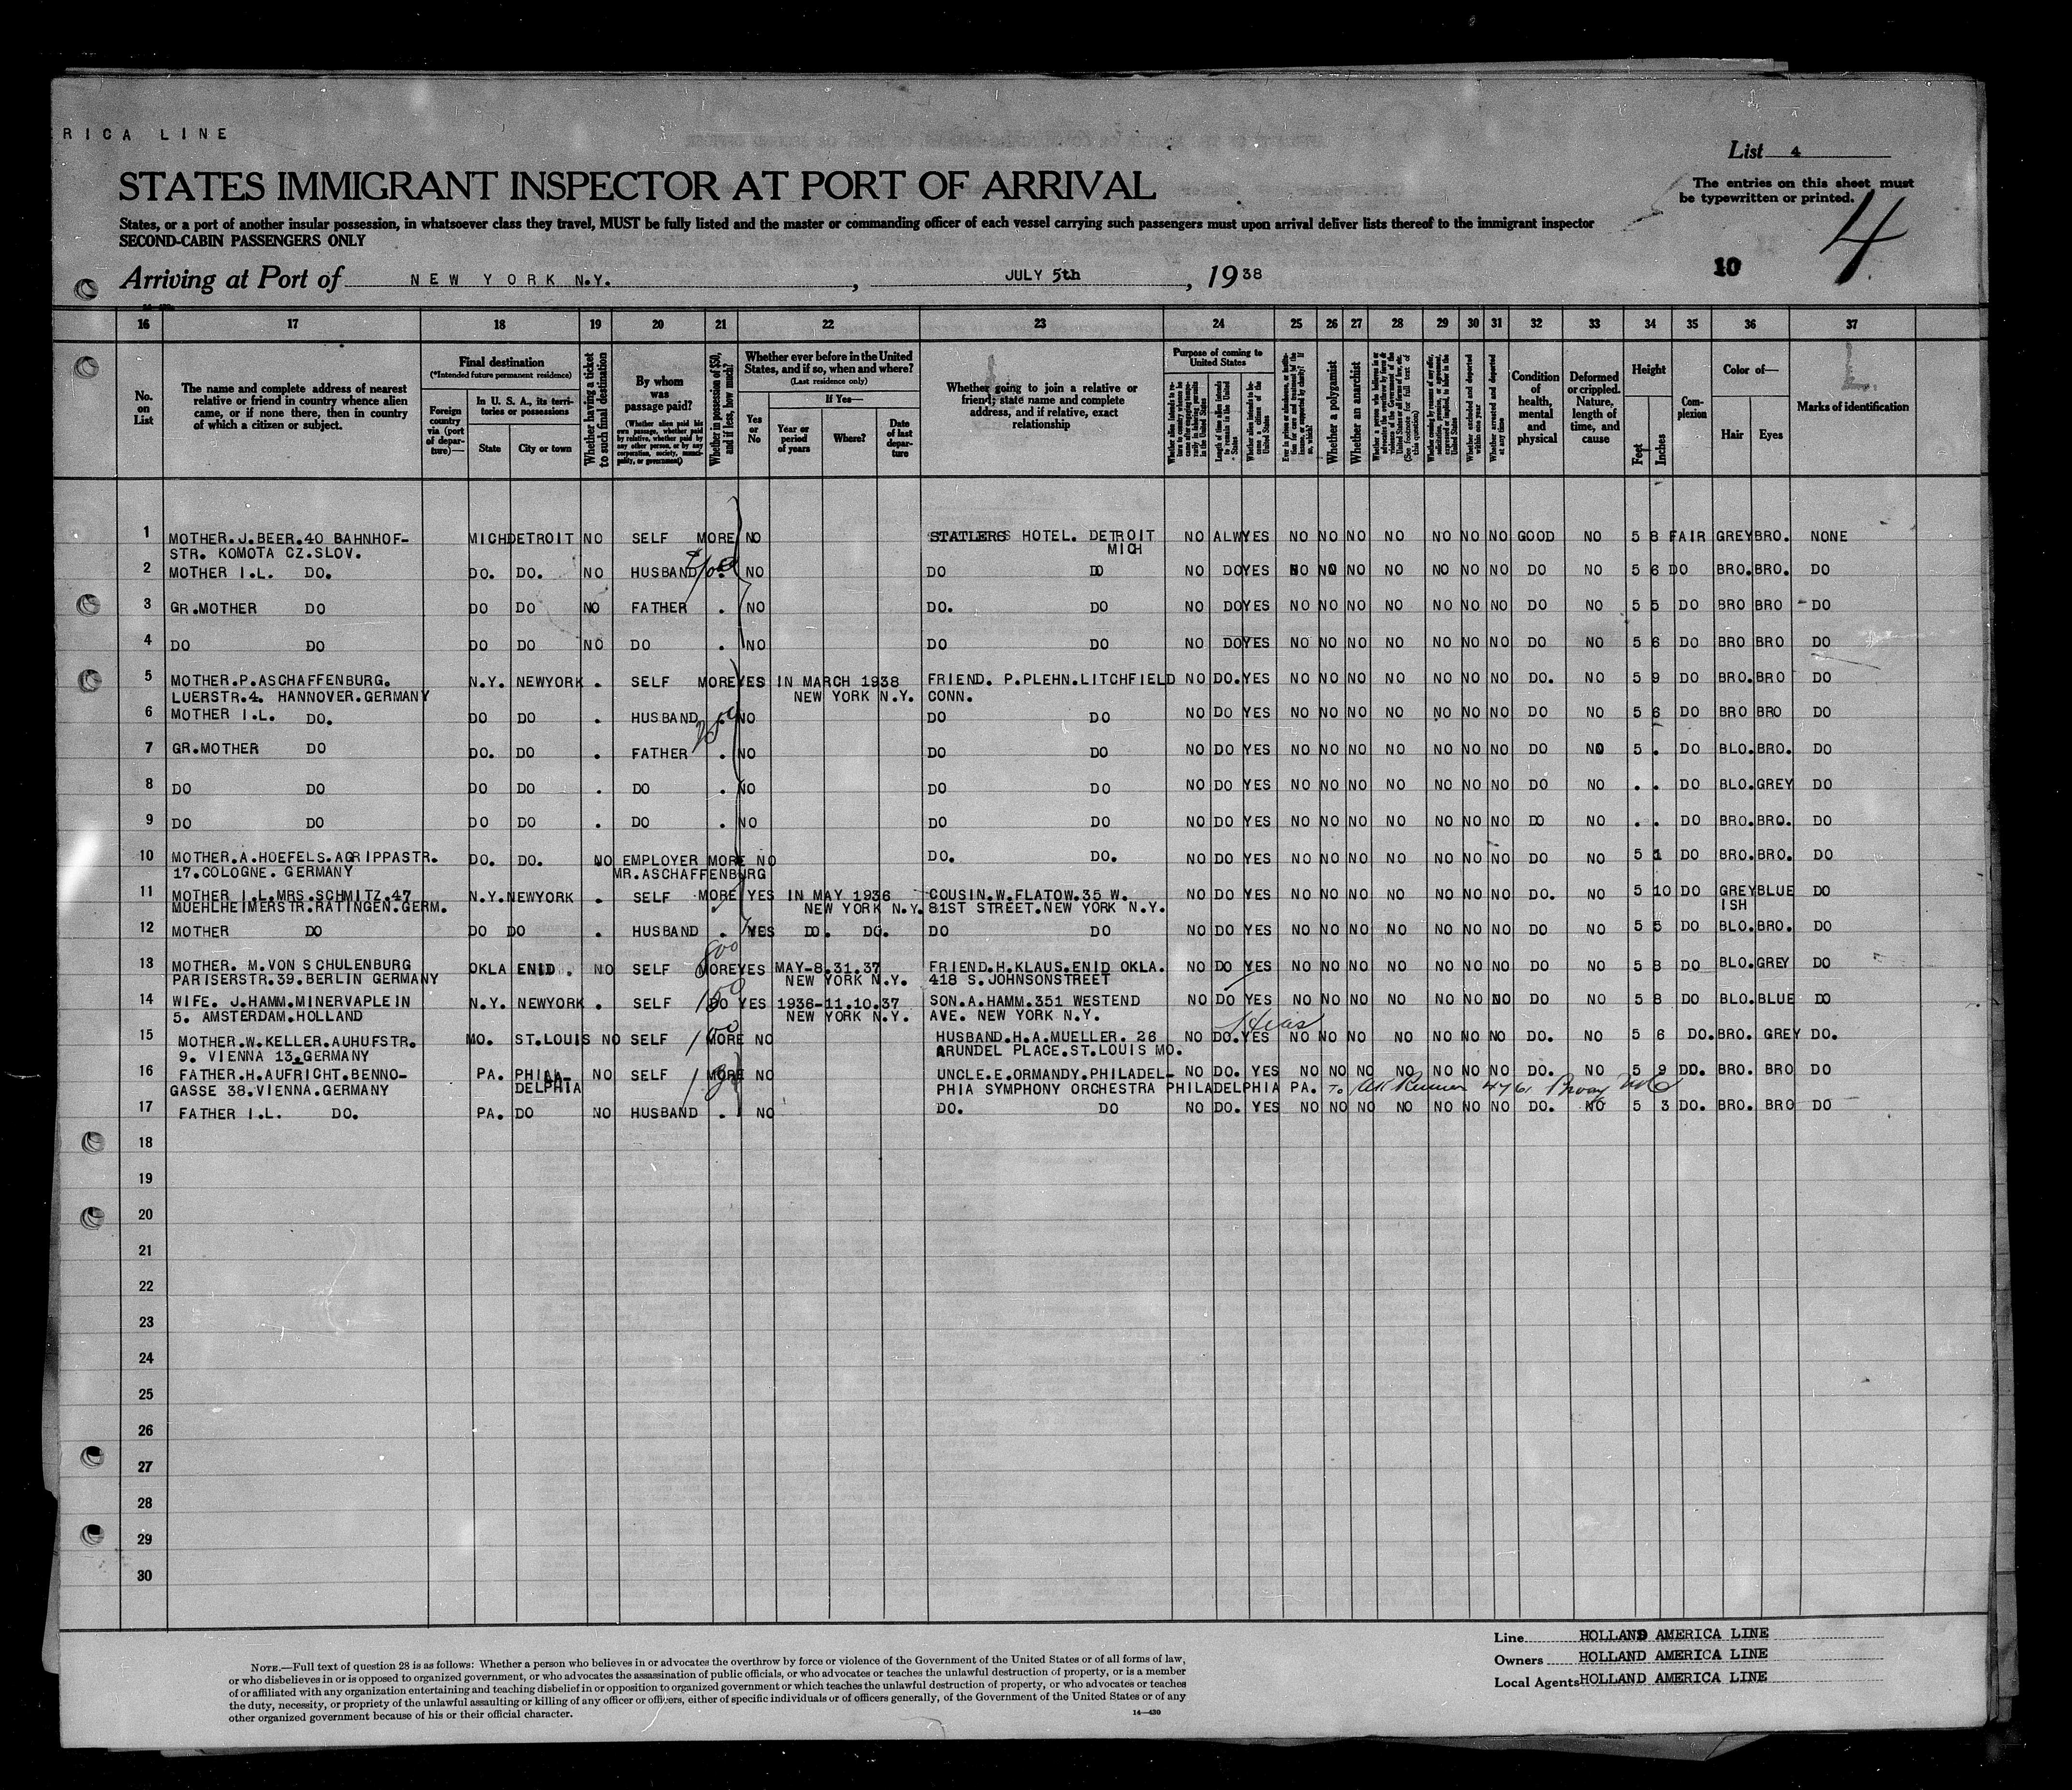 RICA LINE
List 4
STATES IMMIGRANT INSPECTOR AT PORT OF ARRIVAL
The entries on this sheet must
be typewritten or printed.
States, or a port of another insular possession, in whatsoever class they travel, MUST be fully listed and the master or commanding officer of each vessel carrying such passengers must upon arrival deliver lists thereof to the immigrant inspector
SECOND-CABIN PASSENGERS ONLY
4
10
Arriving at Port of NEW YORK N.Y. , JULY 5th , 1938
16 17 18 19 20 21 22 23 24 25 26 27 28 29 30 31 32 33 34 35 36 37
No. on List
The name and complete address of nearest relative or friend in country whence alien came, or if none there, then in country of which a citizen or subject.
Final destination
(*Intended future permanent residence)
Foreign country via (port of departure)—
In U. S. A., its territories or possessions
State
City or town
Whether having a ticket to such final destination
By whom was passage paid?
(Whether alien paid his own passage, whether paid by relative, whether paid by any other person, or by any corporation, society, municipality, or government)
Whether in possession of $50, and if less, how much?
Whether ever before in the United States, and if so, when and where?
(Last residence only)
Yes or No
If Yes—
Year or period of years
Where?
Date of last departure
Whether going to join a relative or friend; state name and complete address, and if relative, exact relationship
Purpose of coming to United States
Length of time alien intends to remain in the United States
Whether alien intends to become a citizen of the United States
Whether a polygamist
Whether an anarchist
Whether arrested and deported at any time
Condition of health, mental and physical
Deformed or crippled. Nature, length of time, and cause
Height
Feet
Inches
Complexion
Color of—
Hair
Eyes
Marks of identification
1 MOTHER.J.BEER.40 BAHNHOF- MICH DETROIT NO SELF MORE NO STATLERS HOTEL. DETROIT NO ALW YES NO NO NO NO NO NO NO GOOD NO 5 8 FAIR GREY BRO. NONE
STR. KOMOTA CZ.SLOV. MICH
2 MOTHER I.L. DO. DO. DO. NO HUSBAND . NO DO DO NO DO YES NO NO NO NO NO NO NO DO NO 5 6 DO BRO. BRO. DO
3 GR.MOTHER DO DO DO NO FATHER . NO DO. DO NO DO YES NO NO NO NO NO NO NO DO NO 5 5 DO BRO BRO DO
4 DO DO DO DO NO DO . NO DO DO NO DO YES NO NO NO NO NO NO NO DO NO 5 6 DO BRO BRO DO
5 MOTHER.P.ASCHAFFENBURG. N.Y. NEWYORK . SELF MORE YES IN MARCH 1938 FRIEND. P.PLEHN.LITCHFIELD NO DO. YES NO NO NO NO NO NO NO DO. NO 5 9 DO BRO. BRO DO
LUERSTR.4. HANNOVER.GERMANY NEW YORK N.Y. CONN.
6 MOTHER I.L. DO. DO DO . HUSBAND . NO DO DO NO DO YES NO NO NO NO NO NO NO DO NO 5 6 DO BRO BRO DO
7 GR.MOTHER DO DO. DO . FATHER . NO DO DO NO DO YES NO NO NO NO NO NO NO DO NO 5 . DO BLO. BRO. DO
8 DO DO DO DO . DO . NO DO DO NO DO YES NO NO NO NO NO NO NO DO NO . . DO BLO. GREY DO
9 DO DO DO DO . DO . NO DO DO NO DO YES NO NO NO NO NO NO NO DO NO . . DO BRO. BRO. DO
10 MOTHER.A.HOEFELS.AGRIPPASTR. DO. DO. NO EMPLOYER MORE NO DO. DO. NO DO YES NO NO NO NO NO NO NO DO NO 5 1 DO BRO. BRO. DO
17.COLOGNE. GERMANY MR.ASCHAFFENBURG
11 MOTHER I.L.MRS.SCHMITZ.47 N.Y. NEWYORK . SELF MORE YES IN MAY 1936 COUSIN.W.FLATOW.35 W. NO DO YES NO NO NO NO NO NO NO DO. NO 5 10 DO GREY BLUE DO
MUEHLHEIMERSTR.RATINGEN.GERM. NEW YORK N.Y. 81ST STREET.NEW YORK N.Y. ISH
12 MOTHER DO DO DO . HUSBAND . YES DO. DO. DO DO NO DO YES NO NO NO NO NO NO NO DO NO 5 5 DO BLO. BRO. DO
800
13 MOTHER. M.VON SCHULENBURG OKLA ENID. NO SELF MORE YES MAY-8.31.37 FRIEND.H.KLAUS.ENID OKLA. NO DO YES NO NO NO NO NO NO NO DO NO 5 8 DO BLO. GREY DO
PARISERSTR.39.BERLIN GERMANY NEW YORK N.Y. 418 S.JOHNSONSTREET
14 WIFE. J.HAMM.MINERVAPLEIN N.Y. NEWYORK . SELF 150 DO YES 1936-11.10.37 SON.A.HAMM.351 WESTEND NO DO YES NO NO NO NO NO NO NO DO NO 5 8 DO BLO. BLUE DO
5. AMSTERDAM.HOLLAND NEW YORK N.Y. AVE. NEW YORK N.Y.
Hias
15 MOTHER.W.KELLER.AUHUFSTR. MO. ST.LOUIS NO SELF 100 MORE NO HUSBAND.H.A.MUELLER. 26 NO DO. YES NO NO NO NO NO NO NO DO. NO 5 6 DO. BRO. GREY DO.
9. VIENNA 13.GERMANY ARUNDEL PLACE.ST.LOUIS MO.
16 FATHER.H.AUFRICHT.BENNO- PA. PHILA- NO SELF MORE NO UNCLE.E.ORMANDY.PHILADEL- NO DO. YES NO NO NO NO NO NO NO DO. NO 5 9 DO. BRO. BRO DO
GASSE 38.VIENNA.GERMANY DELPHIA PHIA SYMPHONY ORCHESTRA PHILADELPHIA PA. To 4761
17 FATHER I.L. DO. PA. DO NO HUSBAND . NO DO. DO NO DO. YES NO NO NO NO NO NO NO DO. NO 5 3 DO. BRO. BRO DO
18
19
20
21
22
23
24
25
26
27
28
29
30
Line HOLLAND AMERICA LINE
Owners HOLLAND AMERICA LINE
Local Agents HOLLAND AMERICA LINE
NOTE.—Full text of question 28 is as follows: Whether a person who believes in or advocates the overthrow by force or violence of the Government of the United States or of all forms of law,
or who disbelieves in or is opposed to organized government, or who advocates the assassination of public officials, or who advocates or teaches the unlawful destruction of property, or is a member
of or affiliated with any organization entertaining and teaching disbelief in or opposition to organized government or which teaches the unlawful destruction of property, or who advocates or teaches
the duty, necessity, or propriety of the unlawful assaulting or killing of any officer or officers, either of specific individuals or of officers generally, of the Government of the United States or of any
other organized government because of his or their official character.
14—430